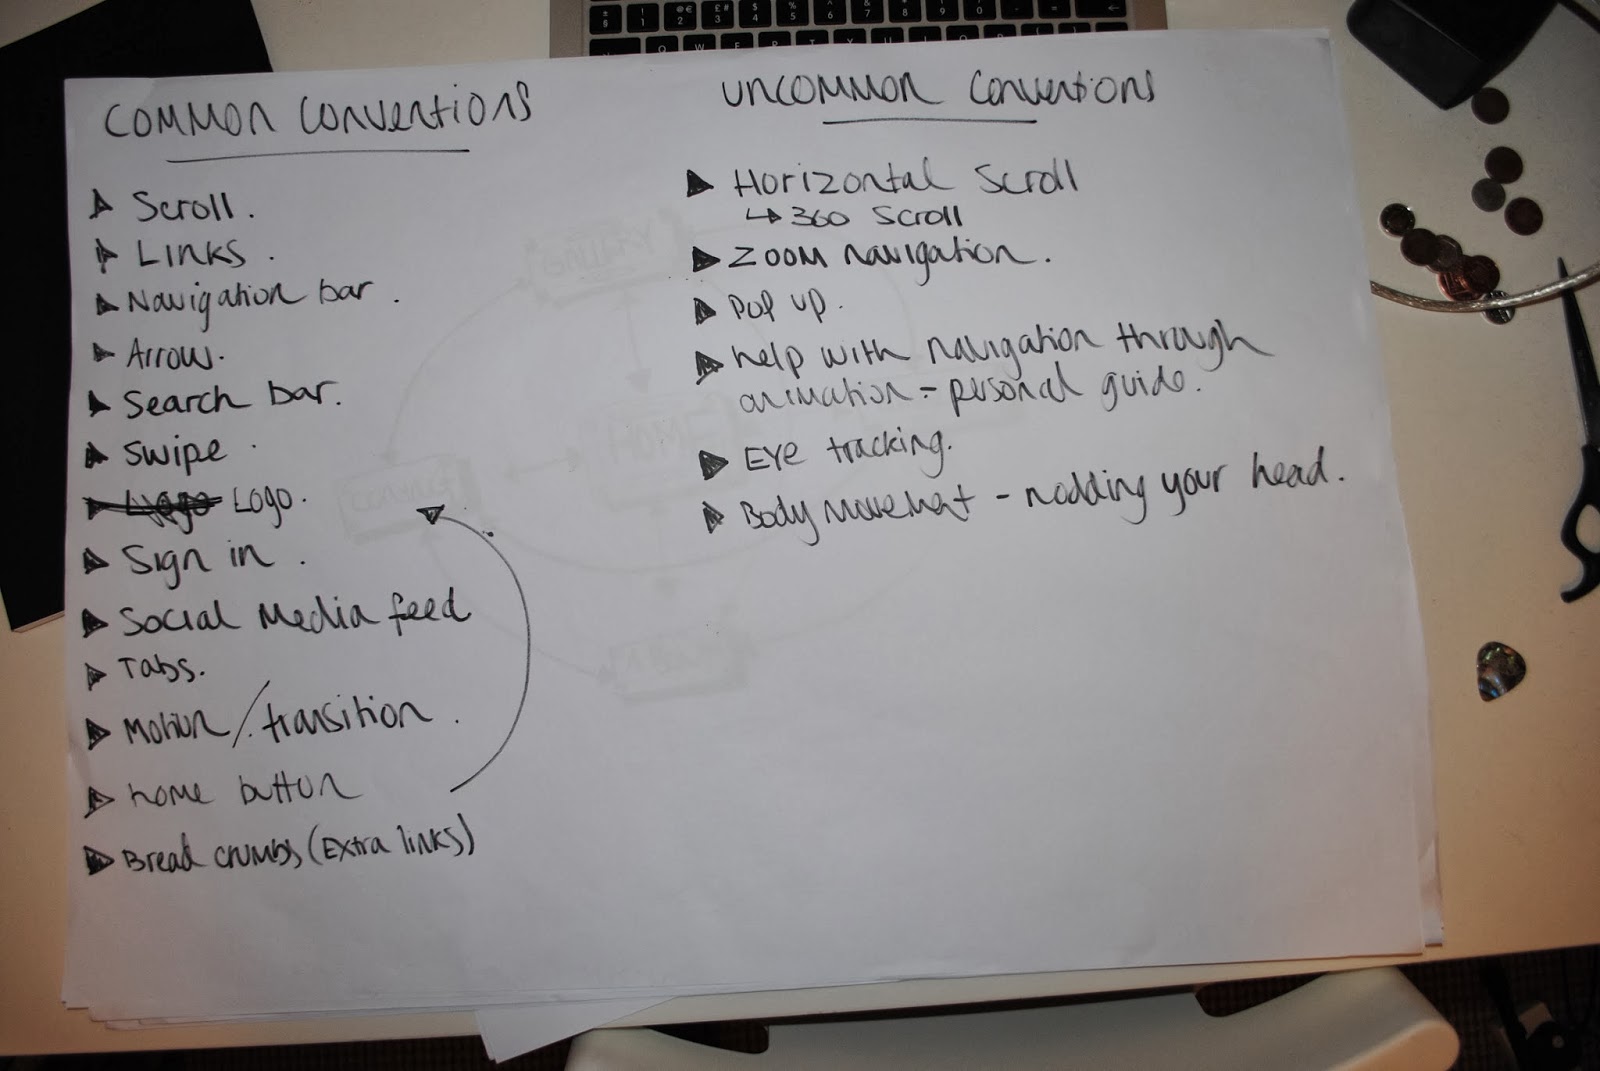 COMMON CONVENTIONS
Scroll.
LINKS.
Navigation bar.
Arrow.
Search bar.
Swipe.
Logo.
Sign in.
Social Media feed
Tabs.
Motion/transition.
home button
Bread crumbs (Extra links)
UNCOMMON CONVENTIONS
Horizontal Scroll
↳ 360 Scroll
ZOOM navigation.
Pop up.
help with navigation through
animation - personal guide.
Eye tracking.
Body movement - nodding your head.